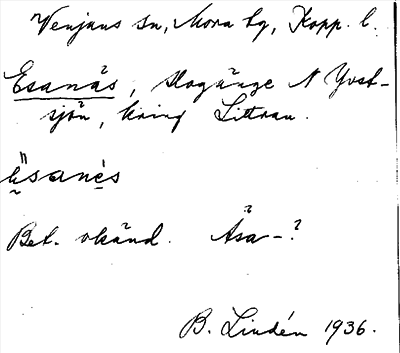 Venjans sn, Mora tg, Kopp. l.
Esanäs, skogänge N Yvst-
sjön, kring Littran.
Bet. okänd. Åsa-?
B. Lindén 1936.